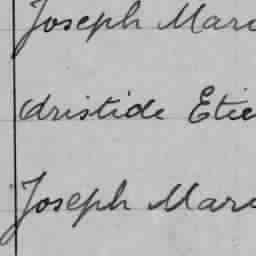 Joseph Marc
Aristide Etie
Joseph Marc